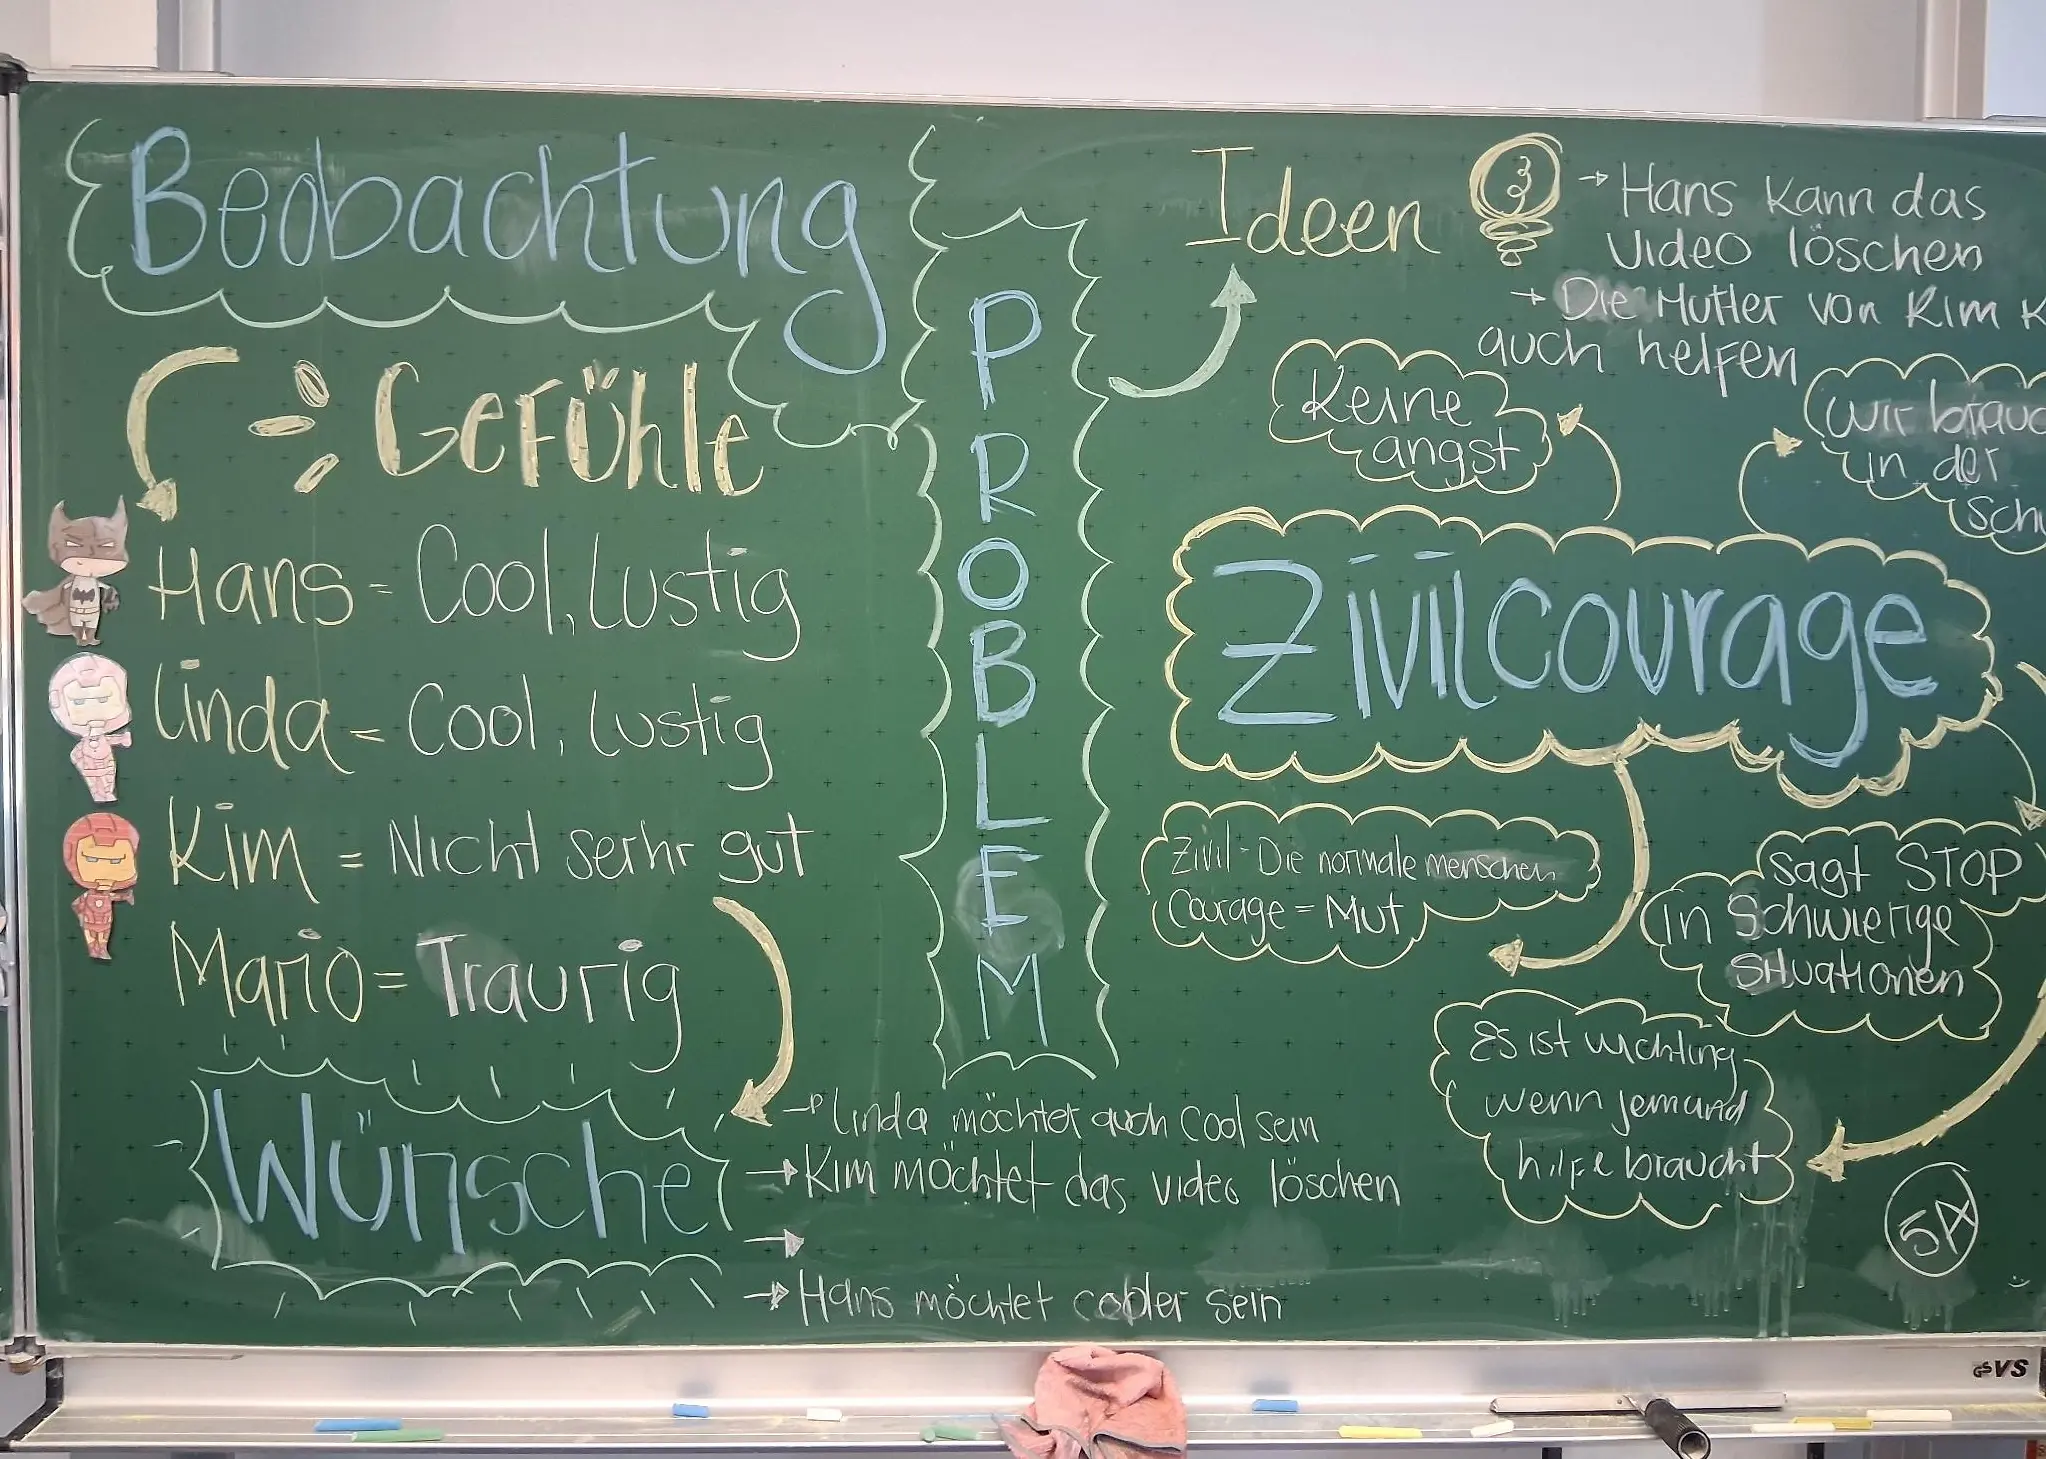 Beobachtung
Gefühle
Hans = Cool, Lustig
Linda = Cool, Lustig
Kim = Nicht serhr gut
Mario = Traurig
Wünsche
→ Linda möchtet auch Cool sein
→ Kim möchtet das video löschen
→
→ Hans möchtet cooler sein
PROBLEM
Ideen
→ Hans kann das
Video löschen
→ Die Mutter von Kim K
auch helfen
Keine
angst
Wir brauc
in der
Schu
Zivilcourage
Zivil - Die normale menschen
Courage = Mut
sagt STOP
in Schwierige
Situationen
Es ist wichting
wenn jemand
hilfe braucht
5A
GS VS